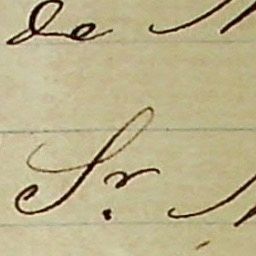 de
Sr.